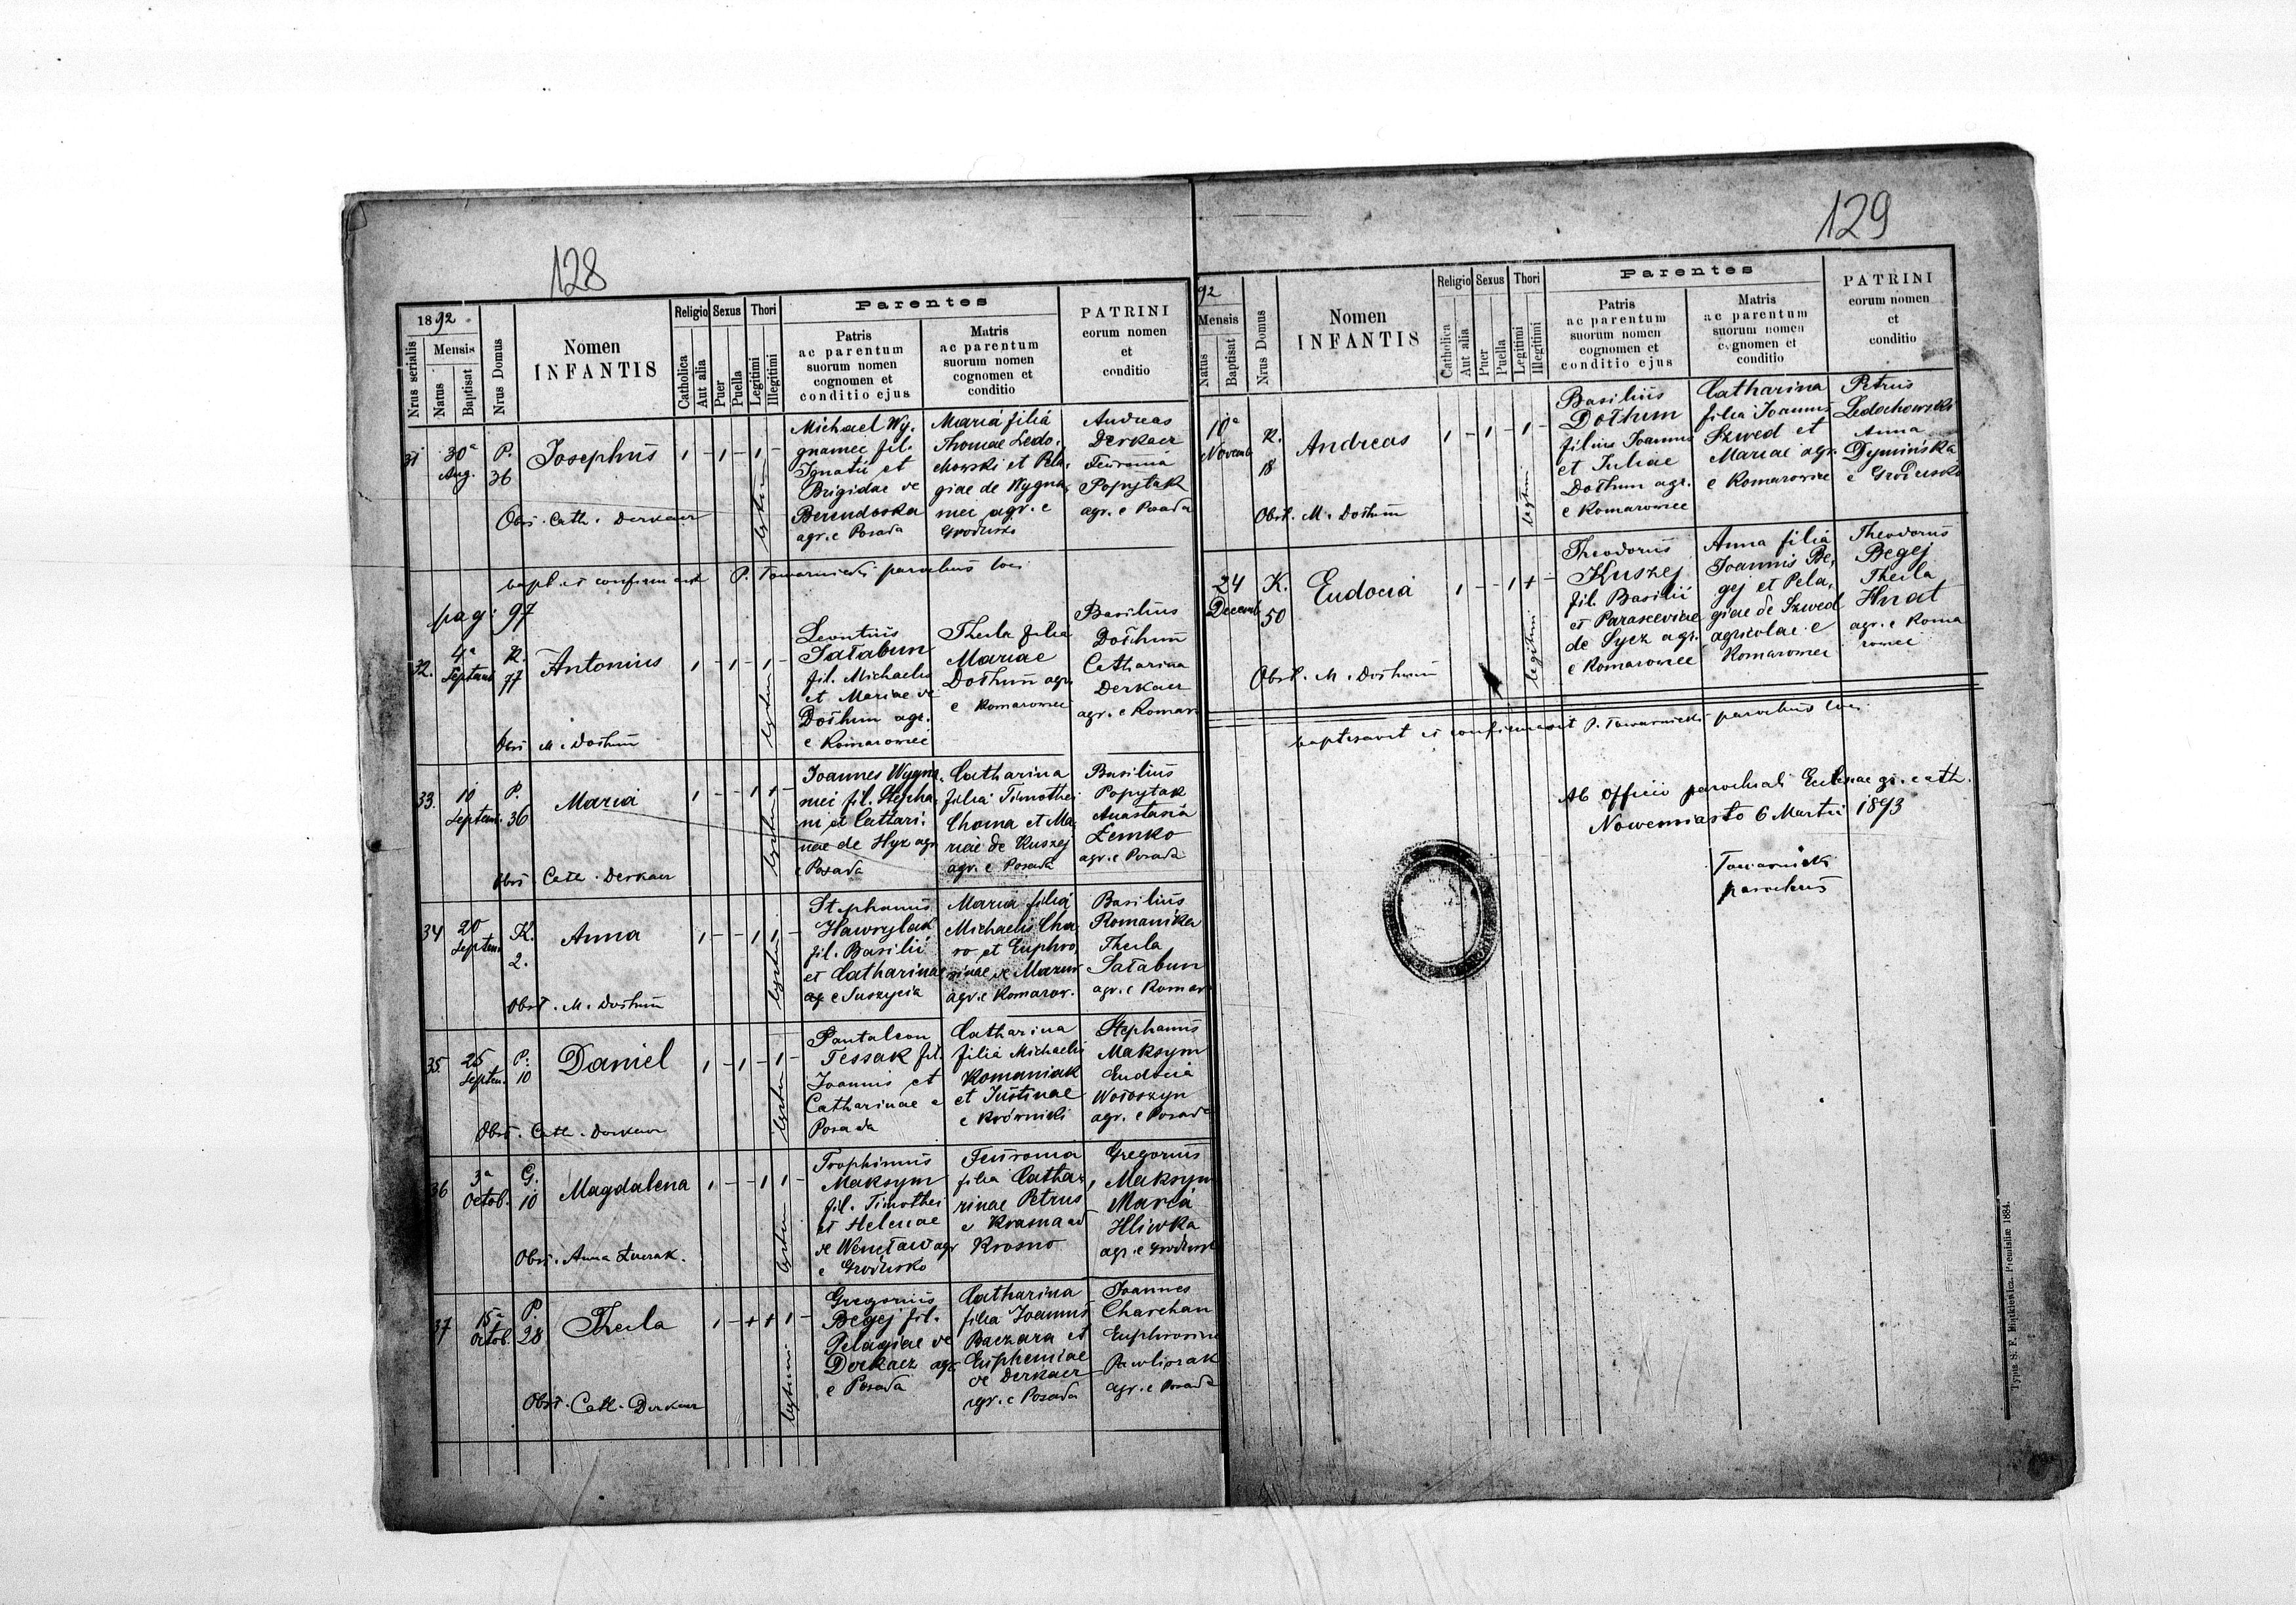 128
1892.
Nrus serialis
Mensis
Natus
Baptisat
Nrus Domus
Nomen
INFANTIS
Religio
Catholica
Aut alia
Sexus
Puer
Puella
Thori
Legitimi
Illegitimi
Parentes
Patris
ac parentum
suorum nomen
cognomen et
conditio ejus
Matris
ac parentum
suorum nomen
cognomen et
conditio
PATRINI
eorum nomen
et
conditio
31
30a
Aug.
P.
36
Josephus
1 - 1 - 1 -
Michael Wy-
gnanec fil.
Ignatii et
Brigidae de
Berendoska
agr. e Posada
Maria filia
Thomae Ledo-
chowski et Pela-
giae de Wygna-
niec agr. e
Grodzisko
Andreas
Derkacz
Feuronia
Popytak
agr. e Posada
Obst. Cath. Derkacz
bapt. et confirmavit P. Towarnicki parochus loci
pag: 97
32.
4a
Septem
K.
77
Antonius
1 - 1 - 1 -
Leontius
Satabun
fil. Michaelis
et Mariae de
Dothun agr.
e Komarowice
Thecla filia
Mariae
Dothun agr.
e Komarowice
Basilius
Dothun
Catharina
Derkacz
agr. e Komaro
Obst M. Dothun
33.
10
Septem.
P.
36
Maria
Joannes Wygna-
niec fil. Stepha-
ni et Cathari-
nae de Hyz agr.
e Posada
Catharina
filia Timothei
Choma et Ma-
riae de Kuszej
agr. e Posada
Basilius
Popytak
Anastasia
Łemko
agr. e Posada
Obst Cath. Derkacz
34
20
Septem.
K.
2.
Anna
Stephanus
Hawrylak
fil. Basilii
et Catharinae
agr. e Suszycia
Maria filia
Michaelis Cha
ro et Euphro
sinae de Mazur
agr. e Komarow.
Basilius
Romanika
Thecla
Satabun
agr. e Komar
Obst. M. Dothun
35
25
Septem.
P.
10
Daniel
1 - 1 - 1 -
Pantaleon
Tessak fil.
Joannis et
Catharinae e
Posada
Catharina
filia Michaelis
Romaniak
et Justinae
e Krównicki
Stephanus
Maksym
Eudocia
Wołoszyn
agr. e Posada
Obst. Cath. Derkacz
36
3a
Octob.
G.
10
Magdalena
Trophimus
Maksym
fil. Timothei
et Helenae
de Wencław agr
e Grodzisko
Feuronia
filia Catha-
rinae Petrus
e Krama ad
Krosno
Gregorius
Maksym
Maria
Hliwka
agr. e Grodzisk
Obst. Anna Łuczak.
37
15a
Octob.
P.
28
Thecla
Gregorius
Begej fil.
Pelagiae de
Derkacz agr.
e Posada
Catharina
filia Joannis
Baczara et
Euphemiae
de Derkacz
agr. e Posada
Joannes
Charchan
Euphrosina
Pawliszak
agr. e Posada
Obst. Cath. Derkacz
129
92
Mensis
Natus
Baptisat
Nrus Domus
Nomen
INFANTIS
Religio
Catholica
Aut alia
Sexus
Puer
Puella
Thori
Legitimi
Illegitimi
Parentes
Patris
ac parentum
suorum nomen
cognomen et
conditio ejus
Matris
ac parentum
suorum nomen
cognomen et
conditio
PATRINI
eorum nomen
et
conditio
10a
Novemb
K.
18
Andreas
1 - 1 - 1 -
Basilius
Dothum
filius Joannis
et Juliae
Dothum agr.
e Komarowice
Catharina
filia Joannis
Szwed et
Mariae agr.
e Komarowice
Petrus
Ledochowski
Anna
Dymińska
e Grodzisko
Obst. M. Dothum
24
Decemb
K.
50
Eudocia
Theodorus
Kuszej
fil. Basilii
et Parasceviae
de Sycz agr.
e Komarowice
Anna filia
Joannis Be-
gej et Pela-
giae de Szwed
agricolae e
Komarowice
Theodorus
Begej
Thecla
Hnat
agr. e Koma
rowice
Obst. M. Dothum
baptisavit et confirmavit P. Towarnicki parochus loci
Ab Officio parochiali Ecclesiae gr. cath.
Nowemiasto 6 Martii 1893
Towarnicki
parochus
Typis S. F. Piątkiewicz. Premisliae 1884.